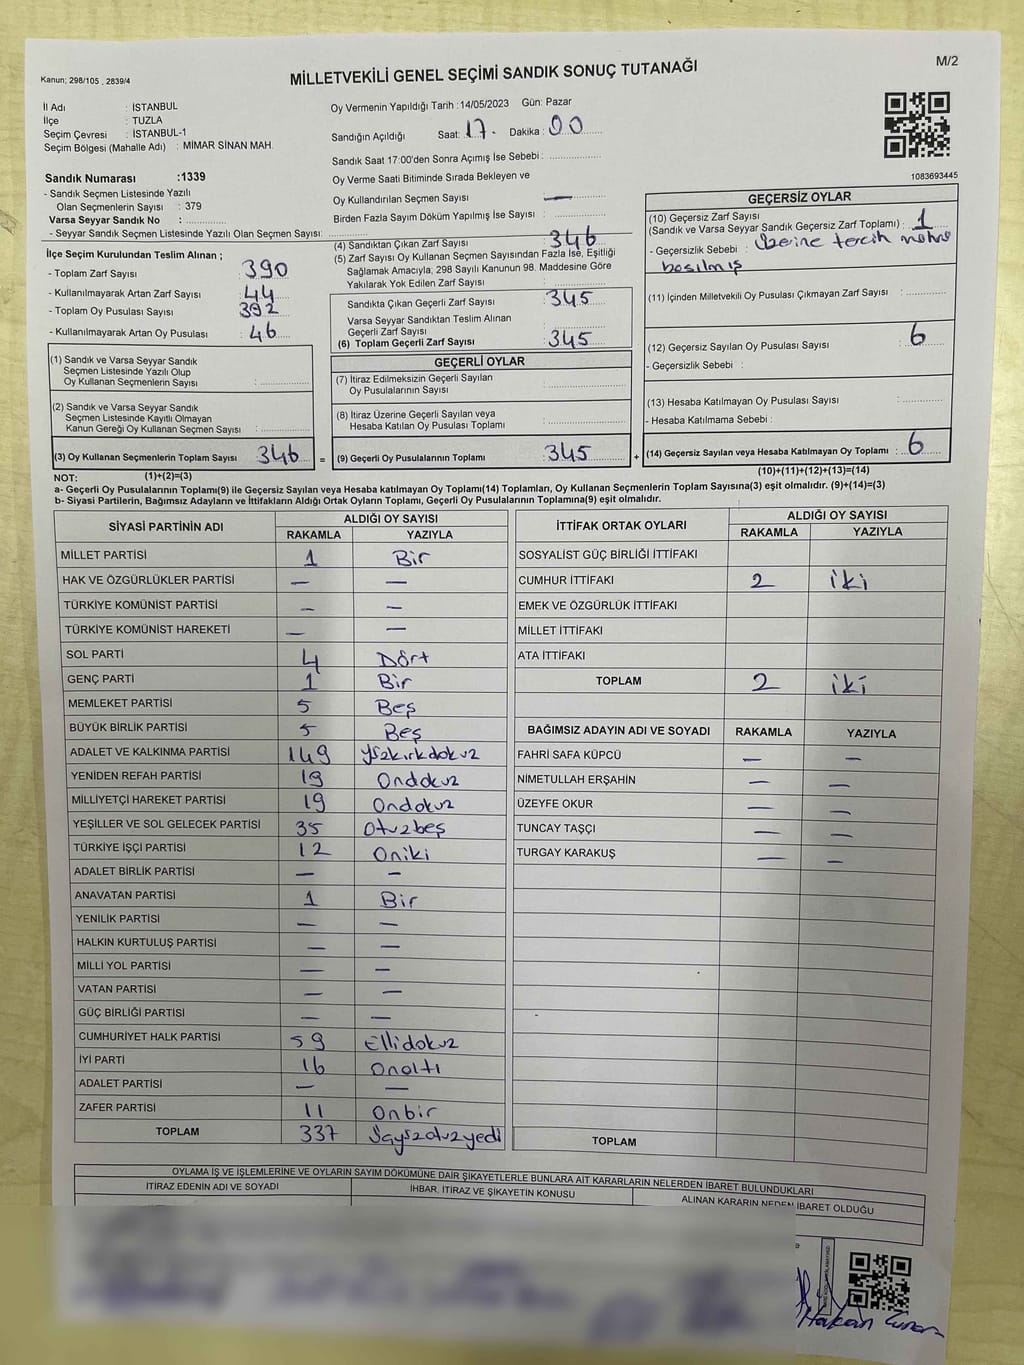 M/2
Kanun; 298/105 , 2839/4
MİLLETVEKİLİ GENEL SEÇİMİ SANDIK SONUÇ TUTANAĞI
İl Adı : İSTANBUL
İlçe : TUZLA
Seçim Çevresi : İSTANBUL-1
Seçim Bölgesi (Mahalle Adı) : MİMAR SİNAN MAH.
Sandık Numarası :1339
- Sandık Seçmen Listesinde Yazılı
Olan Seçmenlerin Sayısı : 379
Varsa Seyyar Sandık No :
- Seyyar Sandık Seçmen Listesinde Yazılı Olan Seçmen Sayısı:
Oy Vermenin Yapıldığı Tarih :14/05/2023 Gün: Pazar
Sandığın Açıldığı Saat: 17 Dakika: 00
Sandık Saat 17:00'den Sonra Açımış İse Sebebi :
Oy Verme Saati Bitiminde Sırada Bekleyen ve
Oy Kullandırılan Seçmen Sayısı : —
Birden Fazla Sayım Döküm Yapılmış İse Sayısı :
1083693445
İlçe Seçim Kurulundan Teslim Alınan ;
- Toplam Zarf Sayısı : 390
- Kullanılmayarak Artan Zarf Sayısı : 44
- Toplam Oy Pusulası Sayısı : 392
- Kullanılmayarak Artan Oy Pusulası : 46
(1) Sandık ve Varsa Seyyar Sandık
Seçmen Listesinde Yazılı Olup
Oy Kullanan Seçmenlerin Sayısı :
(2) Sandık ve Varsa Seyyar Sandık
Seçmen Listesinde Kayıtlı Olmayan
Kanun Gereği Oy Kullanan Seçmen Sayısı :
(3) Oy Kullanan Seçmenlerin Toplam Sayısı : 346 =
(4) Sandıktan Çıkan Zarf Sayısı : 346
(5) Zarf Sayısı Oy Kullanan Seçmen Sayısından Fazla İse, Eşitliği
Sağlamak Amacıyla, 298 Sayılı Kanunun 98. Maddesine Göre
Yakılarak Yok Edilen Zarf Sayısı :
Sandıkta Çıkan Geçerli Zarf Sayısı : 345
Varsa Seyyar Sandıktan Teslim Alınan
Geçerli Zarf Sayısı :
(6) Toplam Geçerli Zarf Sayısı : 345
GEÇERLİ OYLAR
(7) İtiraz Edilmeksizin Geçerli Sayılan
Oy Pusulalarının Sayısı :
(8) İtiraz Üzerine Geçerli Sayılan veya
Hesaba Katılan Oy Pusulası Toplamı :
(9) Geçerli Oy Pusulalarının Toplamı : 345 +
GEÇERSİZ OYLAR
(10) Geçersiz Zarf Sayısı
(Sandık ve Varsa Seyyar Sandık Geçersiz Zarf Toplamı) : 1
- Geçersizlik Sebebi : üzerine tercih mührü
basılmış
(11) İçinden Milletvekili Oy Pusulası Çıkmayan Zarf Sayısı :
(12) Geçersiz Sayılan Oy Pusulası Sayısı : 6
- Geçersizlik Sebebi :
(13) Hesaba Katılmayan Oy Pusulası Sayısı :
- Hesaba Katılmama Sebebi :
(14) Geçersiz Sayılan veya Hesaba Katılmayan Oy Toplamı : 6
NOT: (1)+(2)=(3) (10)+(11)+(12)+(13)=(14)
a- Geçerli Oy Pusulalarının Toplamı(9) ile Geçersiz Sayılan veya Hesaba katılmayan Oy Toplamı(14) Toplamları, Oy Kullanan Seçmenlerin Toplam Sayısına(3) eşit olmalıdır. (9)+(14)=(3)
b- Siyasi Partilerin, Bağımsız Adayların ve İttifakların Aldığı Ortak Oyların Toplamı, Geçerli Oy Pusulalarının Toplamına(9) eşit olmalıdır.
SİYASİ PARTİNİN ADI ALDIĞI OY SAYISI
RAKAMLA YAZIYLA
MİLLET PARTİSİ 1 Bir
HAK VE ÖZGÜRLÜKLER PARTİSİ — —
TÜRKİYE KOMÜNİST PARTİSİ — —
TÜRKİYE KOMÜNİST HAREKETİ — —
SOL PARTİ 4 Dört
GENÇ PARTİ 1 Bir
MEMLEKET PARTİSİ 5 Beş
BÜYÜK BİRLİK PARTİSİ 5 Beş
ADALET VE KALKINMA PARTİSİ 149 yüzkırkdokuz
YENİDEN REFAH PARTİSİ 19 Ondokuz
MİLLİYETÇİ HAREKET PARTİSİ 19 Ondokuz
YEŞİLLER VE SOL GELECEK PARTİSİ 35 Otuzbeş
TÜRKİYE İŞÇİ PARTİSİ 12 Oniki
ADALET BİRLİK PARTİSİ — —
ANAVATAN PARTİSİ 1 Bir
YENİLİK PARTİSİ — —
HALKIN KURTULUŞ PARTİSİ — —
MİLLİ YOL PARTİSİ — —
VATAN PARTİSİ — —
GÜÇ BİRLİĞİ PARTİSİ — —
CUMHURİYET HALK PARTİSİ 59 Ellidokuz
İYİ PARTİ 16 Onaltı
ADALET PARTİSİ — —
ZAFER PARTİSİ 11 Onbir
TOPLAM 337 üçyüzotuzyedi
İTTİFAK ORTAK OYLARI ALDIĞI OY SAYISI
RAKAMLA YAZIYLA
SOSYALİST GÜÇ BİRLİĞİ İTTİFAKI
CUMHUR İTTİFAKI 2 iki
EMEK VE ÖZGÜRLÜK İTTİFAKI
MİLLET İTTİFAKI
ATA İTTİFAKI
TOPLAM 2 iki
BAĞIMSIZ ADAYIN ADI VE SOYADI RAKAMLA YAZIYLA
FAHRİ SAFA KÜPCÜ — —
NİMETULLAH ERŞAHİN — —
ÜZEYFE OKUR — —
TUNCAY TAŞÇI — —
TURGAY KARAKUŞ — —
TOPLAM
OYLAMA İŞ VE İŞLEMLERİNE VE OYLARIN SAYIM DÖKÜMÜNE DAİR ŞİKAYETLERLE BUNLARA AİT KARARLARIN NELERDEN İBARET BULUNDUKLARI
İTİRAZ EDENİN ADI VE SOYADI İHBAR, İTİRAZ VE ŞİKAYETİN KONUSU ALINAN KARARIN NEDEN İBARET OLDUĞU
Hakan